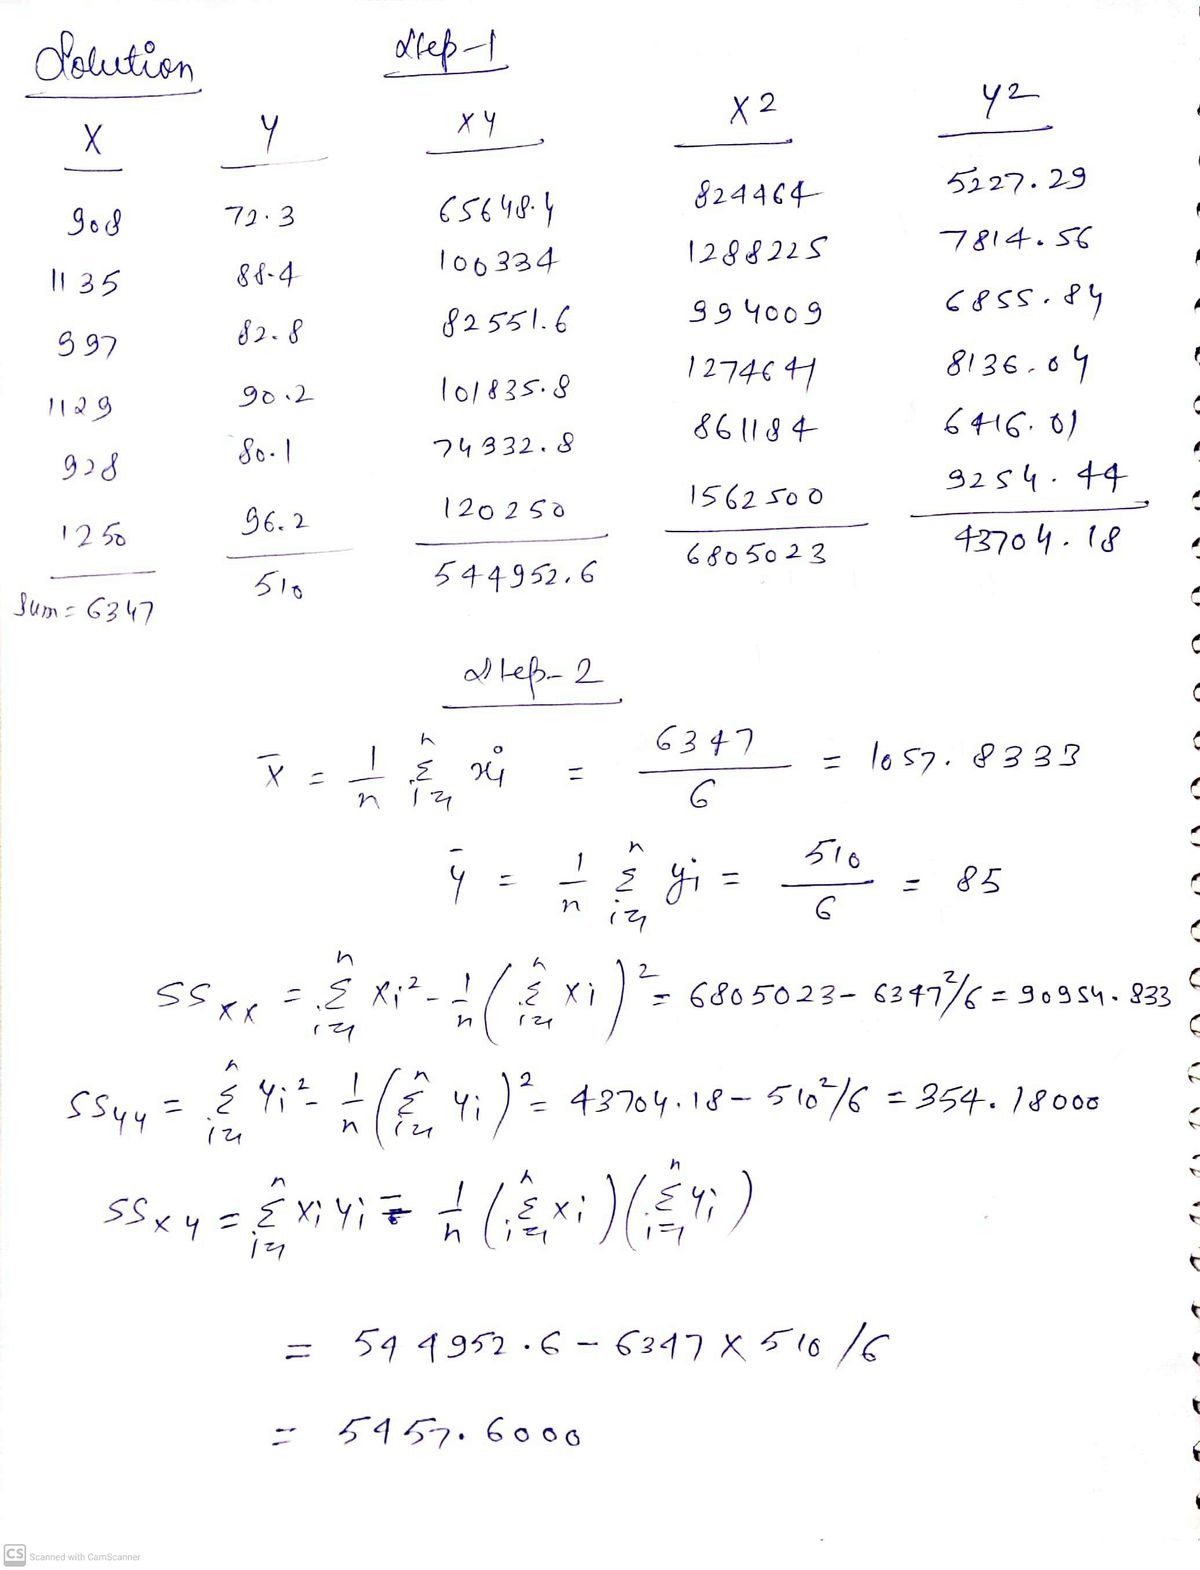 Solution Step-1
X Y XY X2 Y2
908 72.3 65648.4 824464 5227.29
1135 88.4 100334 1288225 7814.56
997 82.8 82551.6 994009 6855.84
1129 90.2 101835.8 1274641 8136.04
928 80.1 74332.8 861184 6416.01
1250 96.2 120250 1562500 9254.44
Sum = 6347 510 544952.6 6805023 43704.18
Step-2
x̄ = 1/n Σⁿᵢ₌₁ xi = 6347/6 = 1057.8333
ȳ = 1/n Σⁿᵢ₌₁ yi = 510/6 = 85
SSxx = Σⁿᵢ₌₁ Xi² - 1/n (Σⁿᵢ₌₁ Xi)² = 6805023 - 6347²/6 = 90954.833
SSyy = Σⁿᵢ₌₁ Yi² - 1/n (Σⁿᵢ₌₁ Yi)² = 43704.18 - 510²/6 = 354.18000
SSxy = Σⁿᵢ₌₁ Xi Yi - 1/n (Σⁿᵢ₌₁ Xi)(Σⁿᵢ₌₁ Yi)
= 544952.6 - 6347 X 510/6
= 5457.6000
CS Scanned with CamScanner